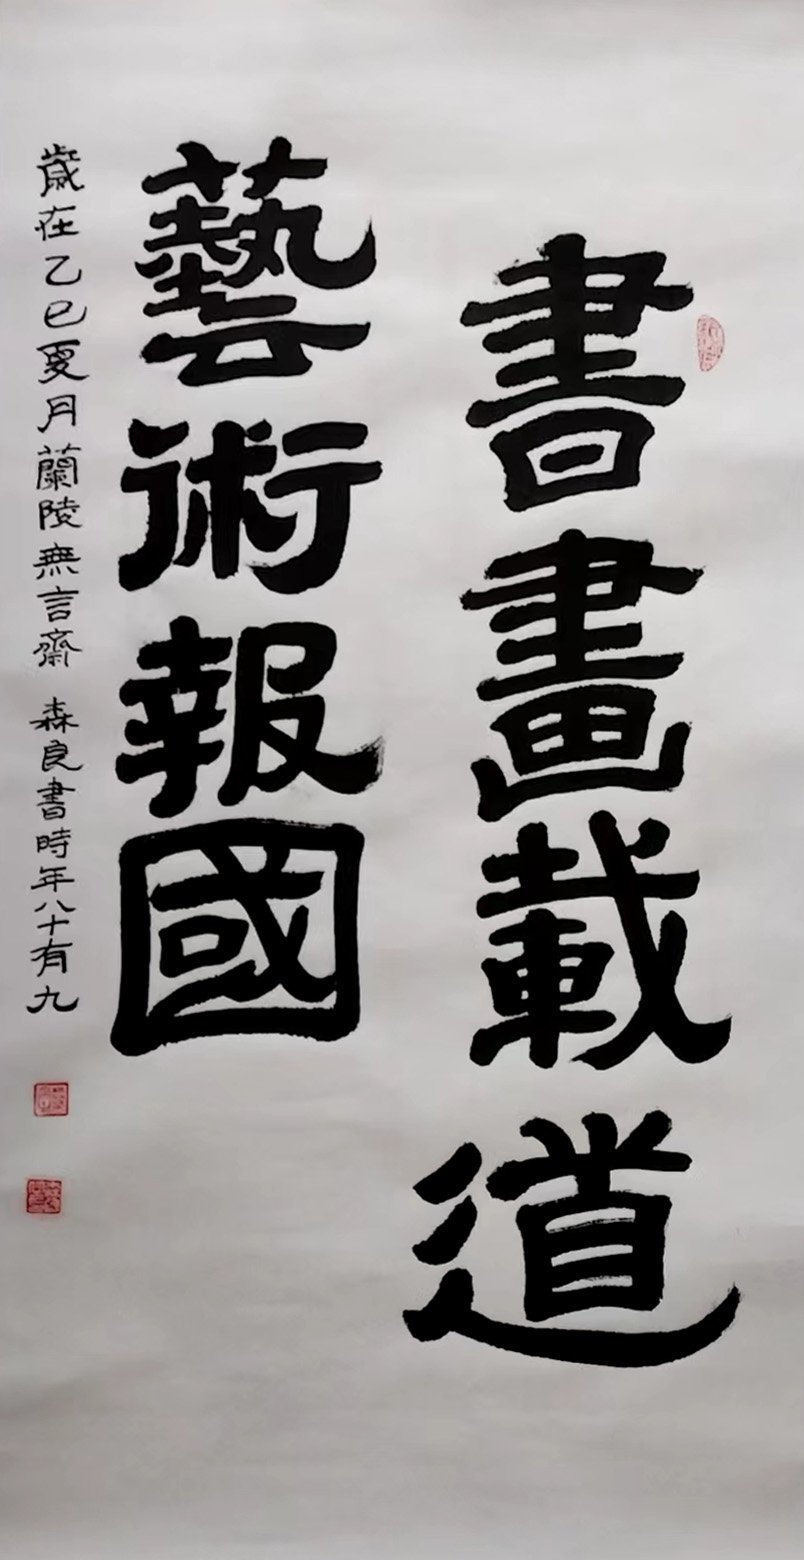 書畫載道
藝術報國
歲在乙巳夏月蘭陵無言齋 森良書時年八十有九